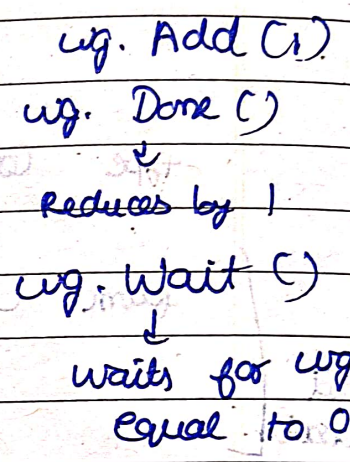 wg. Add (1)
wg. Done ()
↓
Reduces by 1
wg. Wait ()
↓
waits for wg
equal to 0